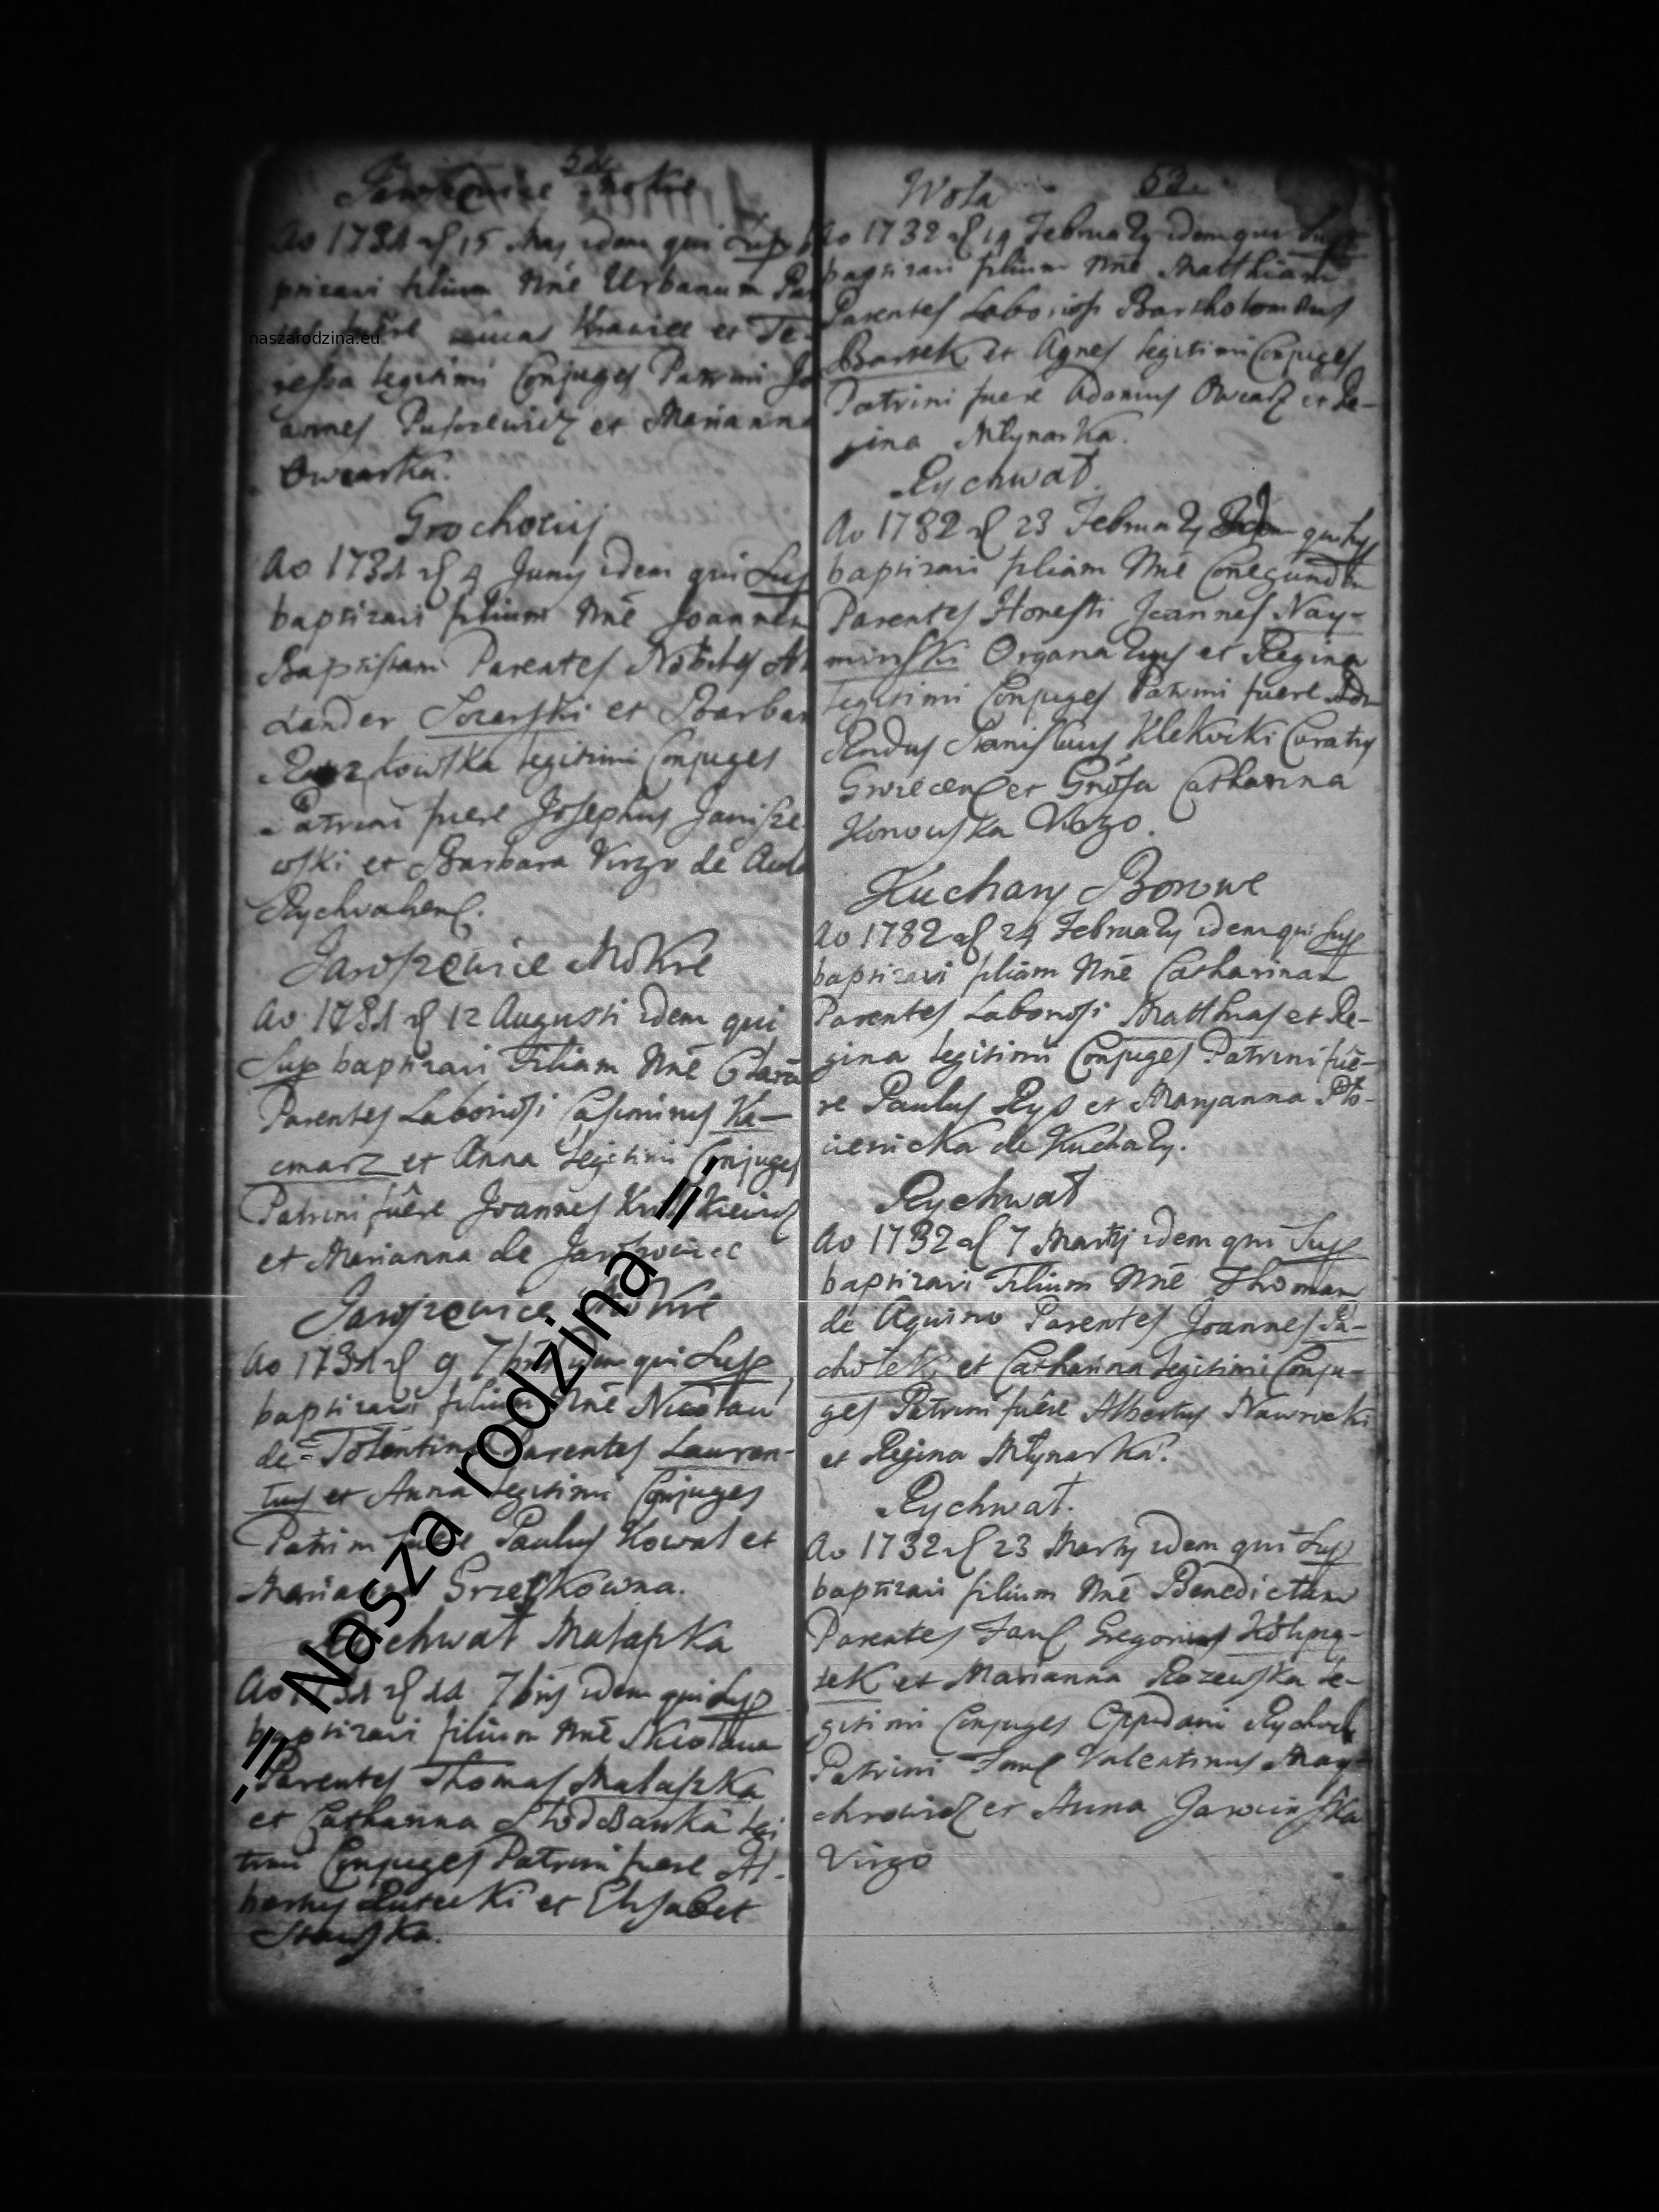 52
Jaroszewice Mokre
Ao 1731 d 15 Maij idem qui Sup
ptizavi filium Nne Urbanum
fuere Lucas Krawiec et Te-
ressa legitimi Conjuges Patrini Jo
annes et Marianna
Owcarka.
Grochowij
Ao 1731 d 4 Junij idem qui Sup
baptizavi filium Nne Joannem
Baptistam Parentes Nobiles
xander et Barbar
legitimi Conjuges
Patrini fuere Josephus Janisze
wski et Barbara Virgo de Aula
Rychvalien.
Jaroszewice Mokre
Ao 1731 d 12 Augusti idem qui
Sup baptizavi Filiam Nne Claram
Parentes Laboriosi Casimirus Ka-
cmarz et Anna Legitimi Conjuges
Patrini fuere Joannes
et Marianna de
Jaroszewice Mokre
Ao 1731 d 9 7bris idem qui Sup
baptizavi filium Nne Nicolau
de Tolentino Parentes Lauren-
tius et Anna legitimi Conjuges
Patrini fuere Paulus Kowal et
Marianna
Rychwał Małapka
Ao 1731 d 11 7bris idem qui Sup
baptizavi filium Nne Nicolaum
Parentes Thomas Małaszka
et Catharina legi
timi Conjuges Patrini fuere Al-
bertus et Elisabet
Wola 52
Ao 1732 d 14 Februarij idem qui Sup
baptizavi filium Nne Matthiam
Parentes Laboriosi Bartholomaeus
Bartek et Agnes legitimi Conjuges
Patrini fuere Adamus Owcarz et Re-
gina Młynarka.
Rychwał.
Ao 1732 d 23 Februarij Idem qui Sup
baptizavi filiam Nne Conegundem
Parentes Honesti Joannes Nay-
minski Organarius et Regina
legitimi Conjuges Patrini fuere Adm
Rndus Stanislaus Klekocki Curatus
et Grosa Catharina
Konowska Virgo.
Kuchary Borowe
Ao 1732 d 24 Februarij idem qui Sup
baptizavi filiam Nne Catharinam
Parentes Laboriosi Matthias et Re-
gina legitimi Conjuges Patrini fue-
re Paulus Rys et Maryanna Pło-
cienicka de Kuchary.
Rychwał
Ao 1732 d 7 Martij idem qui Sup
baptizavi Filium Nne Thomam
de Aquino Parentes Joannes Pa-
chołek et Catharina legitimi Conju-
ges Patrini fuere Albertus Nawrocki
et Regina Młynarka.
Rychwał.
Ao 1732 d 23 Martij idem qui Sup
baptizavi filium Nne Benedictum
Parentes Fam Gregorius
et Marianna Rozewska le-
gitimi Conjuges Oppidani Rychval
Patrini Fam Valentinus May-
chrowicz et Anna
Virgo
naszarodzina.eu
-= Nasza rodzina =-